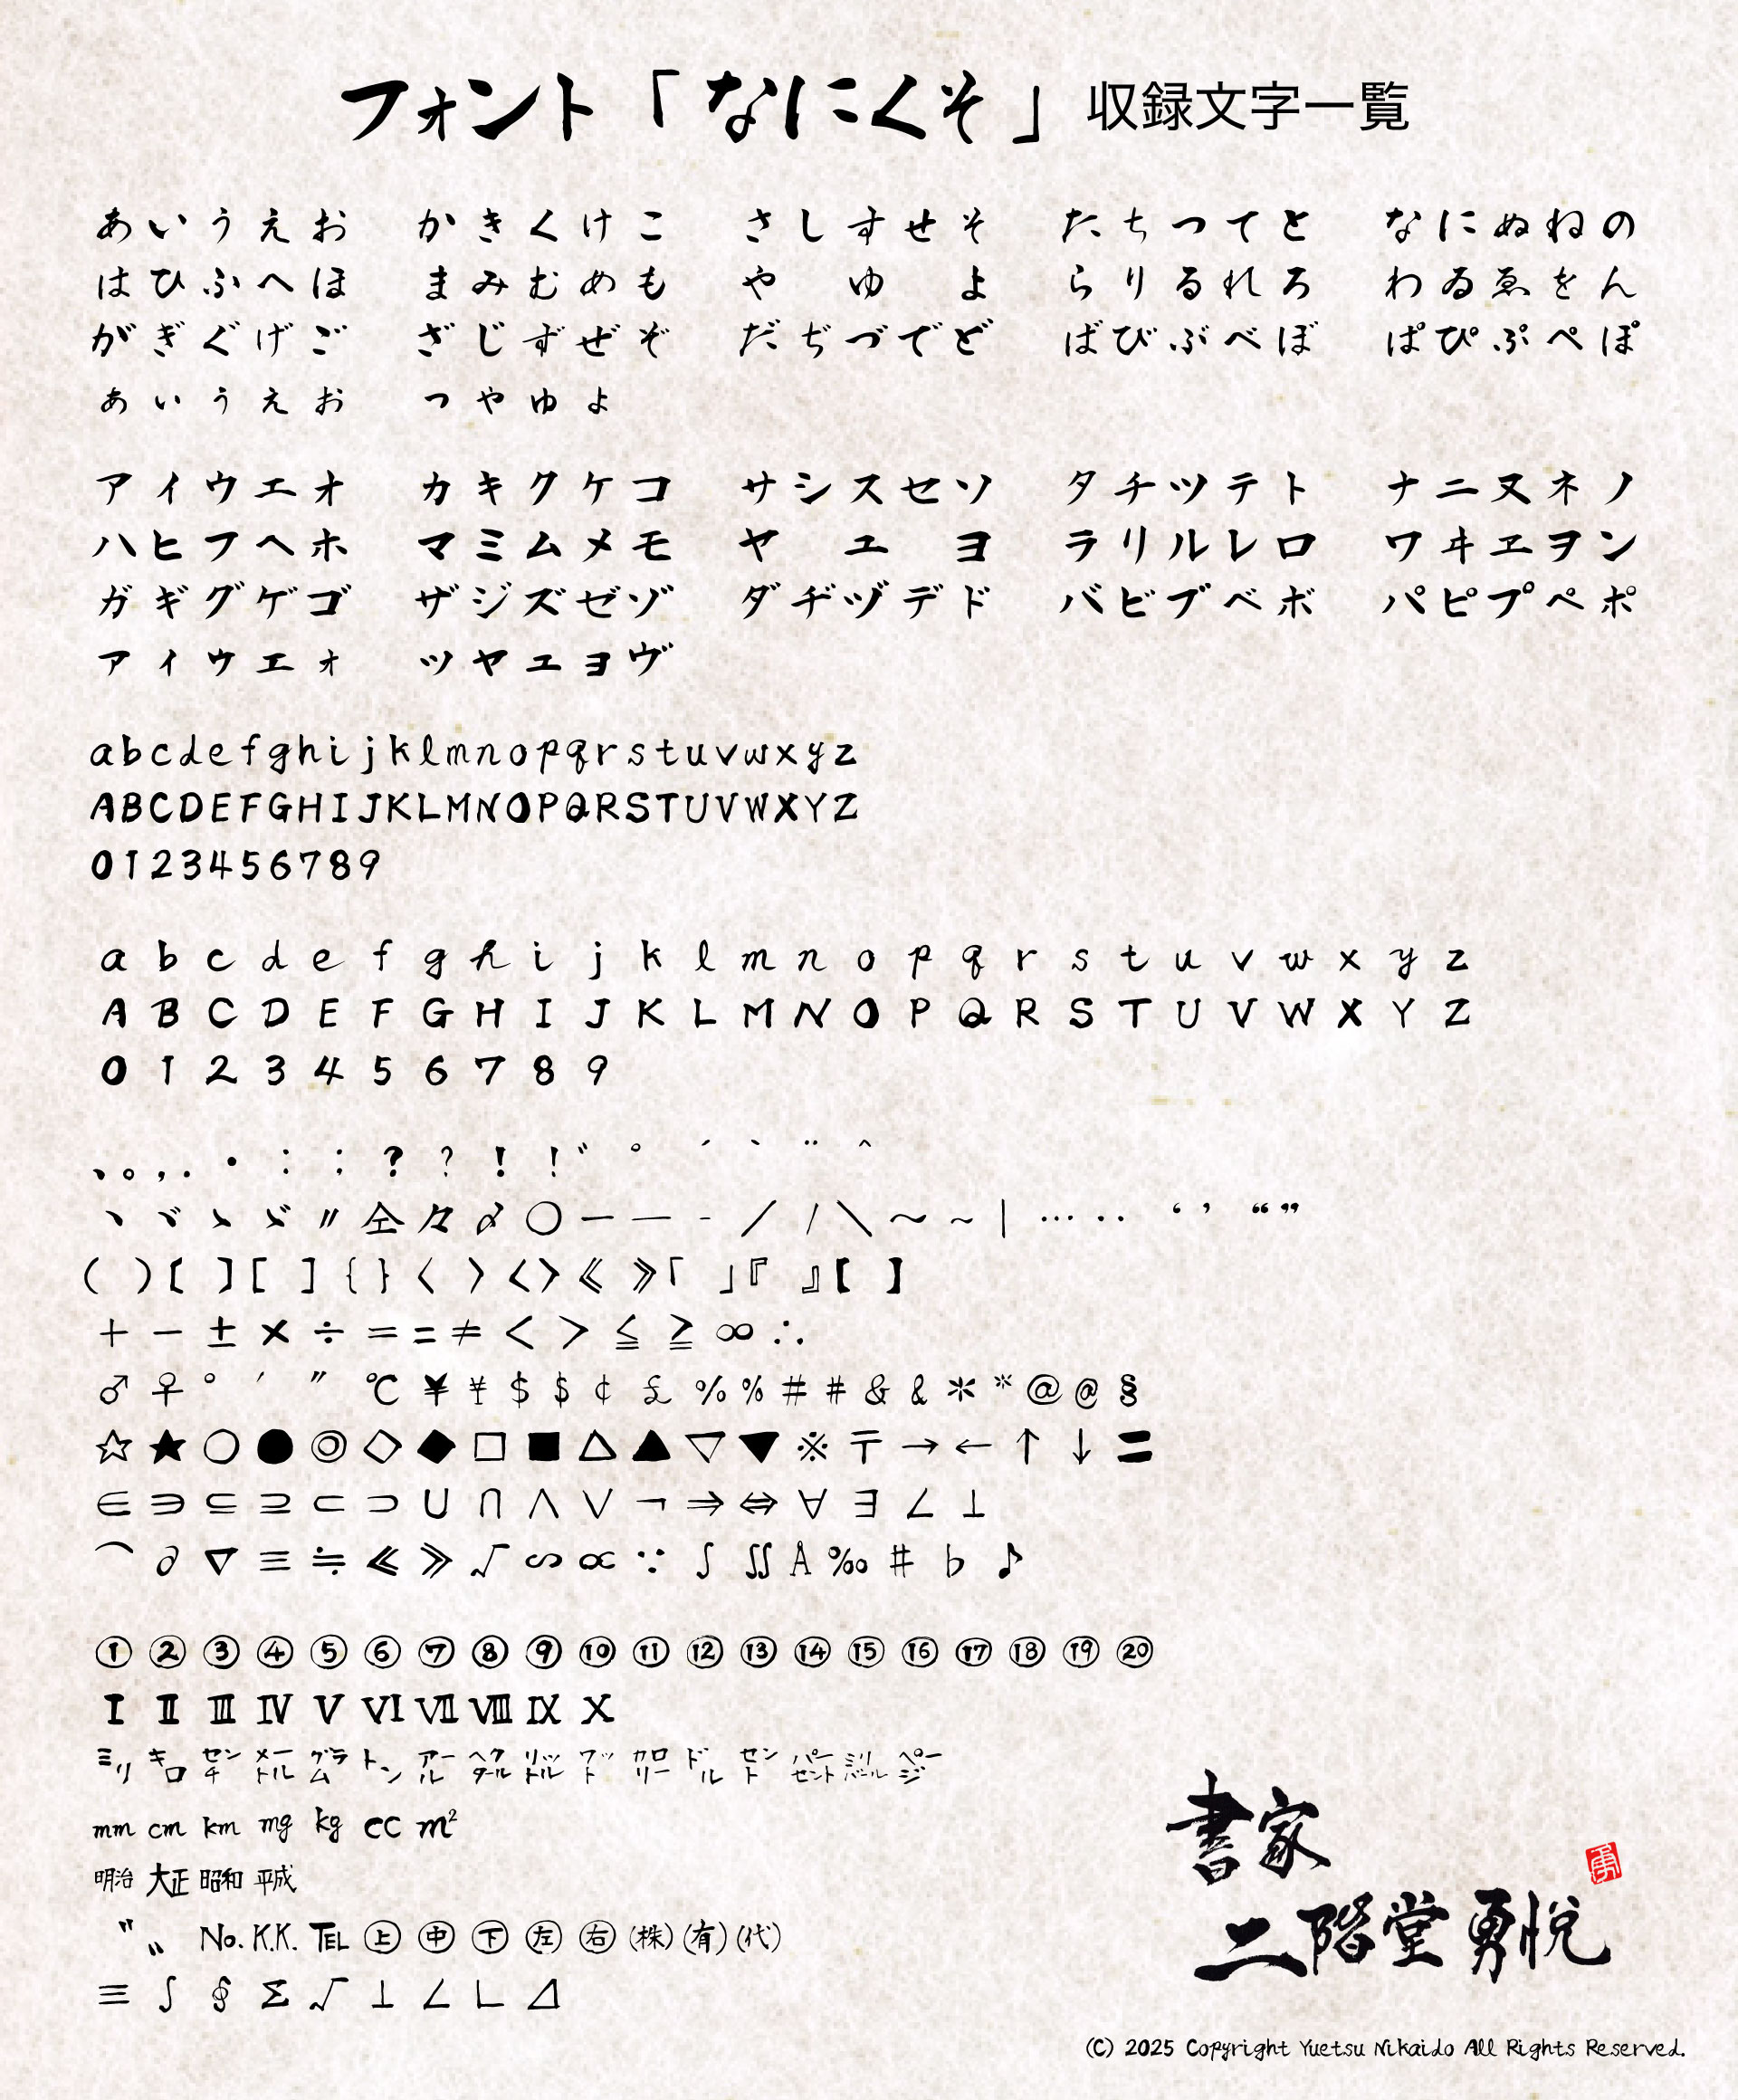 フォント「なにくそ」収録文字一覧
あいうえお かきくけこ さしすせそ たちつてと なにぬねの
はひふへほ まみむめも や ゆ よ らりるれろ わゐゑをん
がぎぐげご ざじずぜぞ だぢづでど ばびぶべぼ ぱぴぷぺぽ
ぁぃぅぇぉ っゃゅょ
アイウエオ カキクケコ サシスセソ タチツテト ナニヌネノ
ハヒフヘホ マミムメモ ヤ ユ ヨ ラリルレロ ワヰヱヲン
ガギグゲゴ ザジズゼゾ ダヂヅデド バビブベボ パピプペポ
ァィゥェォ ッャュョヴ
abcdefghijklmnopqrstuvwxyz
ABCDEFGHIJKLMNOPQRSTUVWXYZ
0123456789
a b c d e f g h i j k l m n o p q r s t u v w x y z
A B C D E F G H I J K L M N O P Q R S T U V W X Y Z
0 1 2 3 4 5 6 7 8 9
、。，．・：；？?！!゛゜´｀¨＾
ヽヾゝゞ〃仝々〆〇ー―‐／/＼～~｜…‥‘’“”
（）〔〕［］{}〈〉<>《》「」『』【】
＋－±×÷＝=≠＜＞≦≧∞∴
♂♀°′″℃￥¥＄$¢£％%＃#＆&＊*＠@§
☆★○●◎◇◆□■△▲▽▼※〒→←↑↓〓
∈∋⊆⊇⊂⊃∪∩∧∨¬⇒⇔∀∃∠⊥
⌒∂∇≡≒≪≫√∽∝∵∫∬Å‰♯♭♪
①②③④⑤⑥⑦⑧⑨⑩⑪⑫⑬⑭⑮⑯⑰⑱⑲⑳
ⅠⅡⅢⅣⅤⅥⅦⅧⅨⅩ
㍉㌔㌢㍍㌘㌧㌃㌶㍑㍗㌍㌦㌣㌫㍊㌻
mm cm km mg kg cc m²
明治 大正 昭和 平成
〝〟 No. K.K. TEL ㊤㊥㊦㊧㊨㈱㈲㈹
≡∫∮Σ√⊥∠∟⊿
書家
二階堂勇悦
勇
(C) 2025 Copyright Yuetsu Nikaido All Rights Reserved.